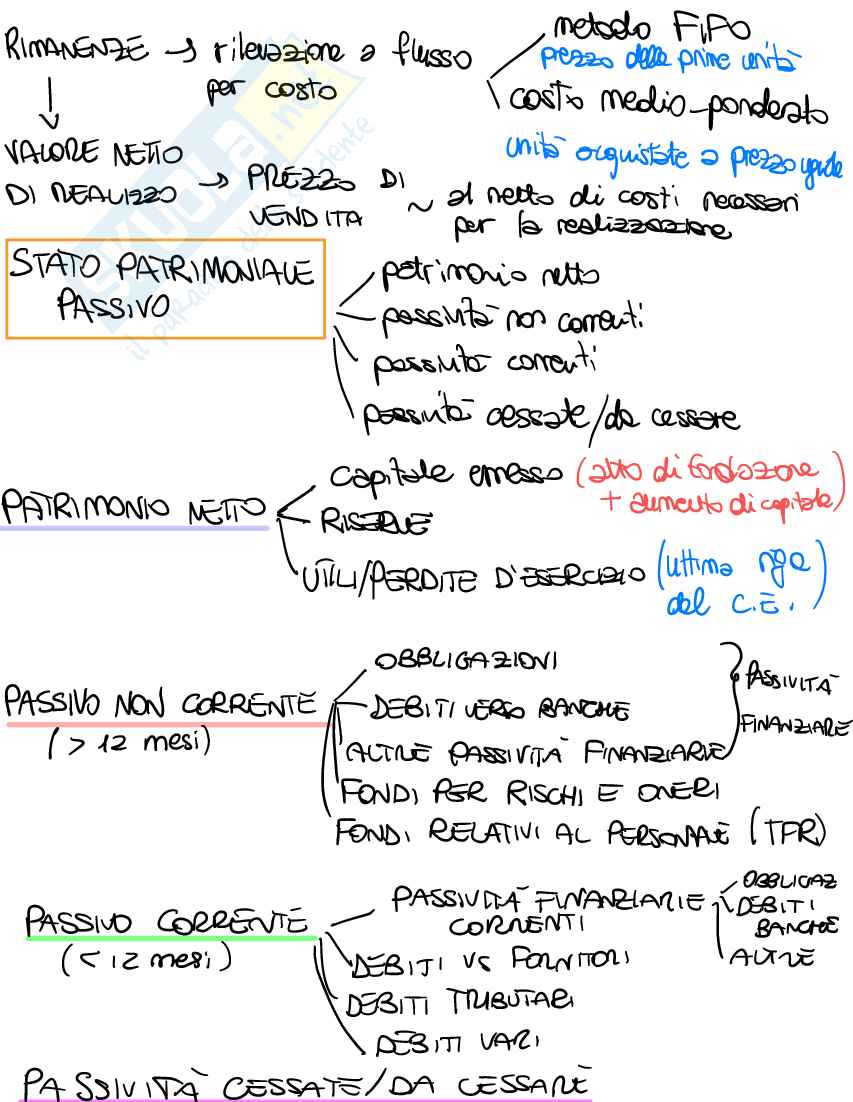 RIMANENZE → rilevazione a flusso
per costo
metodo FIFO
prezzo delle prime unità
costo medio-ponderato
unità acquistate a prezzo uguale
VALORE NETTO
DI REALIZZO → PREZZO DI
VENDITA
~ al netto di costi necessari
per la realizzazione
SKUOLA.net
il paradiso dello studente
STATO PATRIMONIALE
PASSIVO
patrimonio netto
passività non correnti
passività correnti
passività cessate/da cessare
PATRIMONIO NETTO
capitale emesso (atto di fondazione
+ aumento di capitale)
RISERVE
UTILI/PERDITE D'ESERCIZIO (ultima riga
del C.E.)
PASSIVO NON CORRENTE
(> 12 mesi)
OBBLIGAZIONI
DEBITI VERSO BANCHE
ALTRE PASSIVITÀ FINANZIARIE
PASSIVITÀ
FINANZIARIE
FONDI PER RISCHI E ONERI
FONDI RELATIVI AL PERSONALE (TFR)
PASSIVO CORRENTE
(< 12 mesi)
PASSIVITÀ FINANZIARIE
CORRENTI
OBBLIGAZ
DEBITI
BANCHE
ALTRE
DEBITI VS FORNITORI
DEBITI TRIBUTARI
DEBITI VARI
PASSIVITÀ CESSATE/DA CESSARE